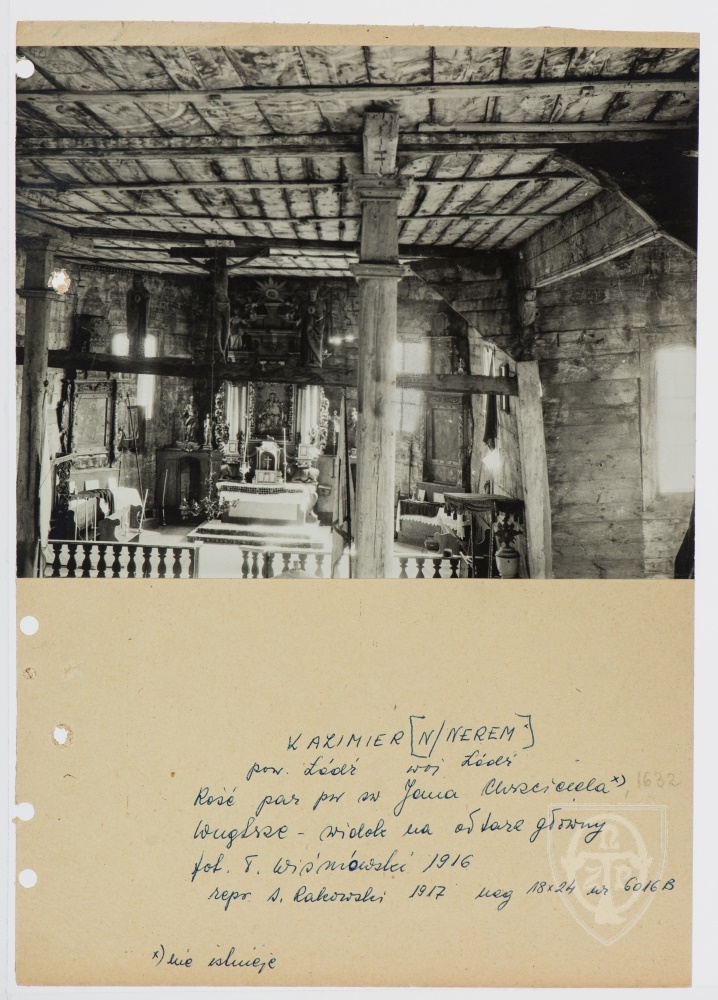 KAZIMIER [N/NEREM]
pow. Łódź woj Łódź
Kość par pw św Jana Chrzciciela x), 1632
Wnętrze - widok na ołtarz główny
fot. T. Wiśniowski 1916
repr S. Rakowski 1917 neg 18x24 nr 6016B
x) nie istnieje